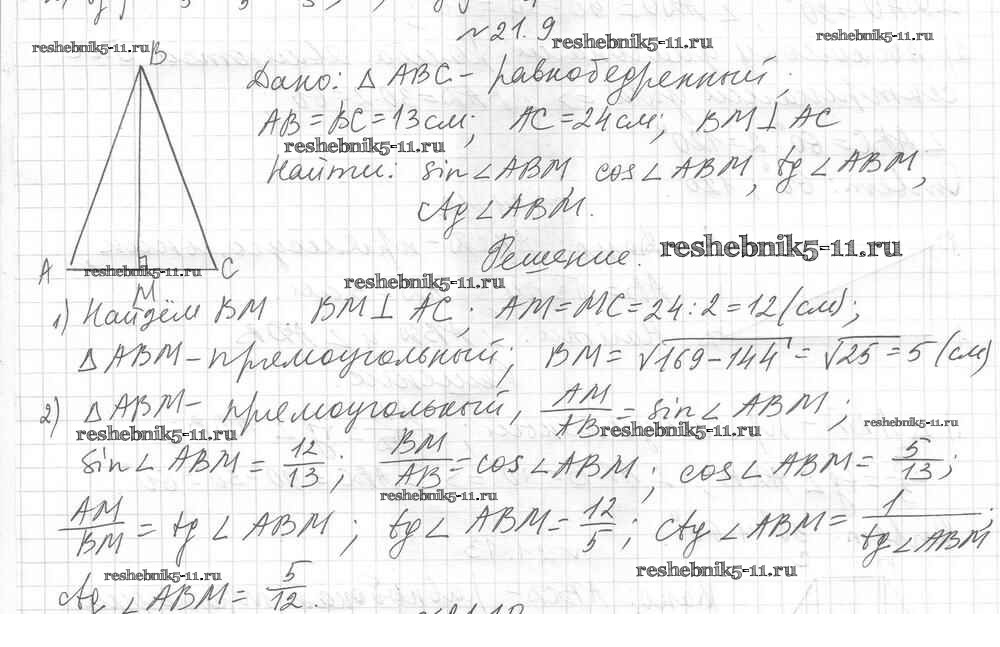 №21.9
reshebnik5-11.ru
reshebnik5-11.ru
reshebnik5-11.ru
B
Дано: △ABC - равнобедренный;
AB=BC=13см; AC=24см; BM⊥AC
reshebnik5-11.ru
Найти: sin∠ABM, cos∠ABM, tg∠ABM,
ctg∠ABM.
Решение.
reshebnik5-11.ru
A
C
reshebnik5-11.ru
reshebnik5-11.ru
M
1) Найдём BM BM⊥AC; AM=MC=24:2=12(см);
△ABM-прямоугольный; BM=√169-144=√25=5(см)
2) △ABM- прямоугольный, AM/AB=sin∠ABM;
reshebnik5-11.ru
reshebnik5-11.ru
reshebnik5-11.ru
sin∠ABM=12/13; BM/AB=cos∠ABM; cos∠ABM=5/13;
reshebnik5-11.ru
AM/BM=tg∠ABM; tg∠ABM=12/5; ctg∠ABM=1/tg∠ABM;
reshebnik5-11.ru
reshebnik5-11.ru
ctg∠ABM=5/12.